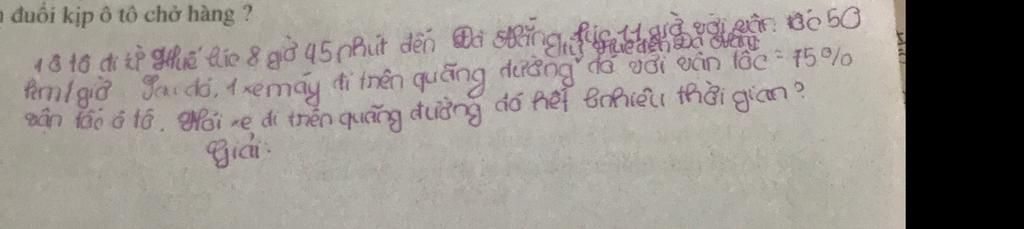 đuổi kịp ô tô chở hàng ?
1 ô tô đi từ Huế lúc 8 giờ 45 phút đến Đà Nẵng lúc 11 giờ với vận tốc 50
từ Huế đến Đà Nẵng
km/giờ. Sau đó, 1 xe máy đi trên quãng đường đó với vận tốc = 75%
vận tốc ô tô. Hỏi xe đi trên quãng đường đó hết bnhiêu thời gian?
Giải: